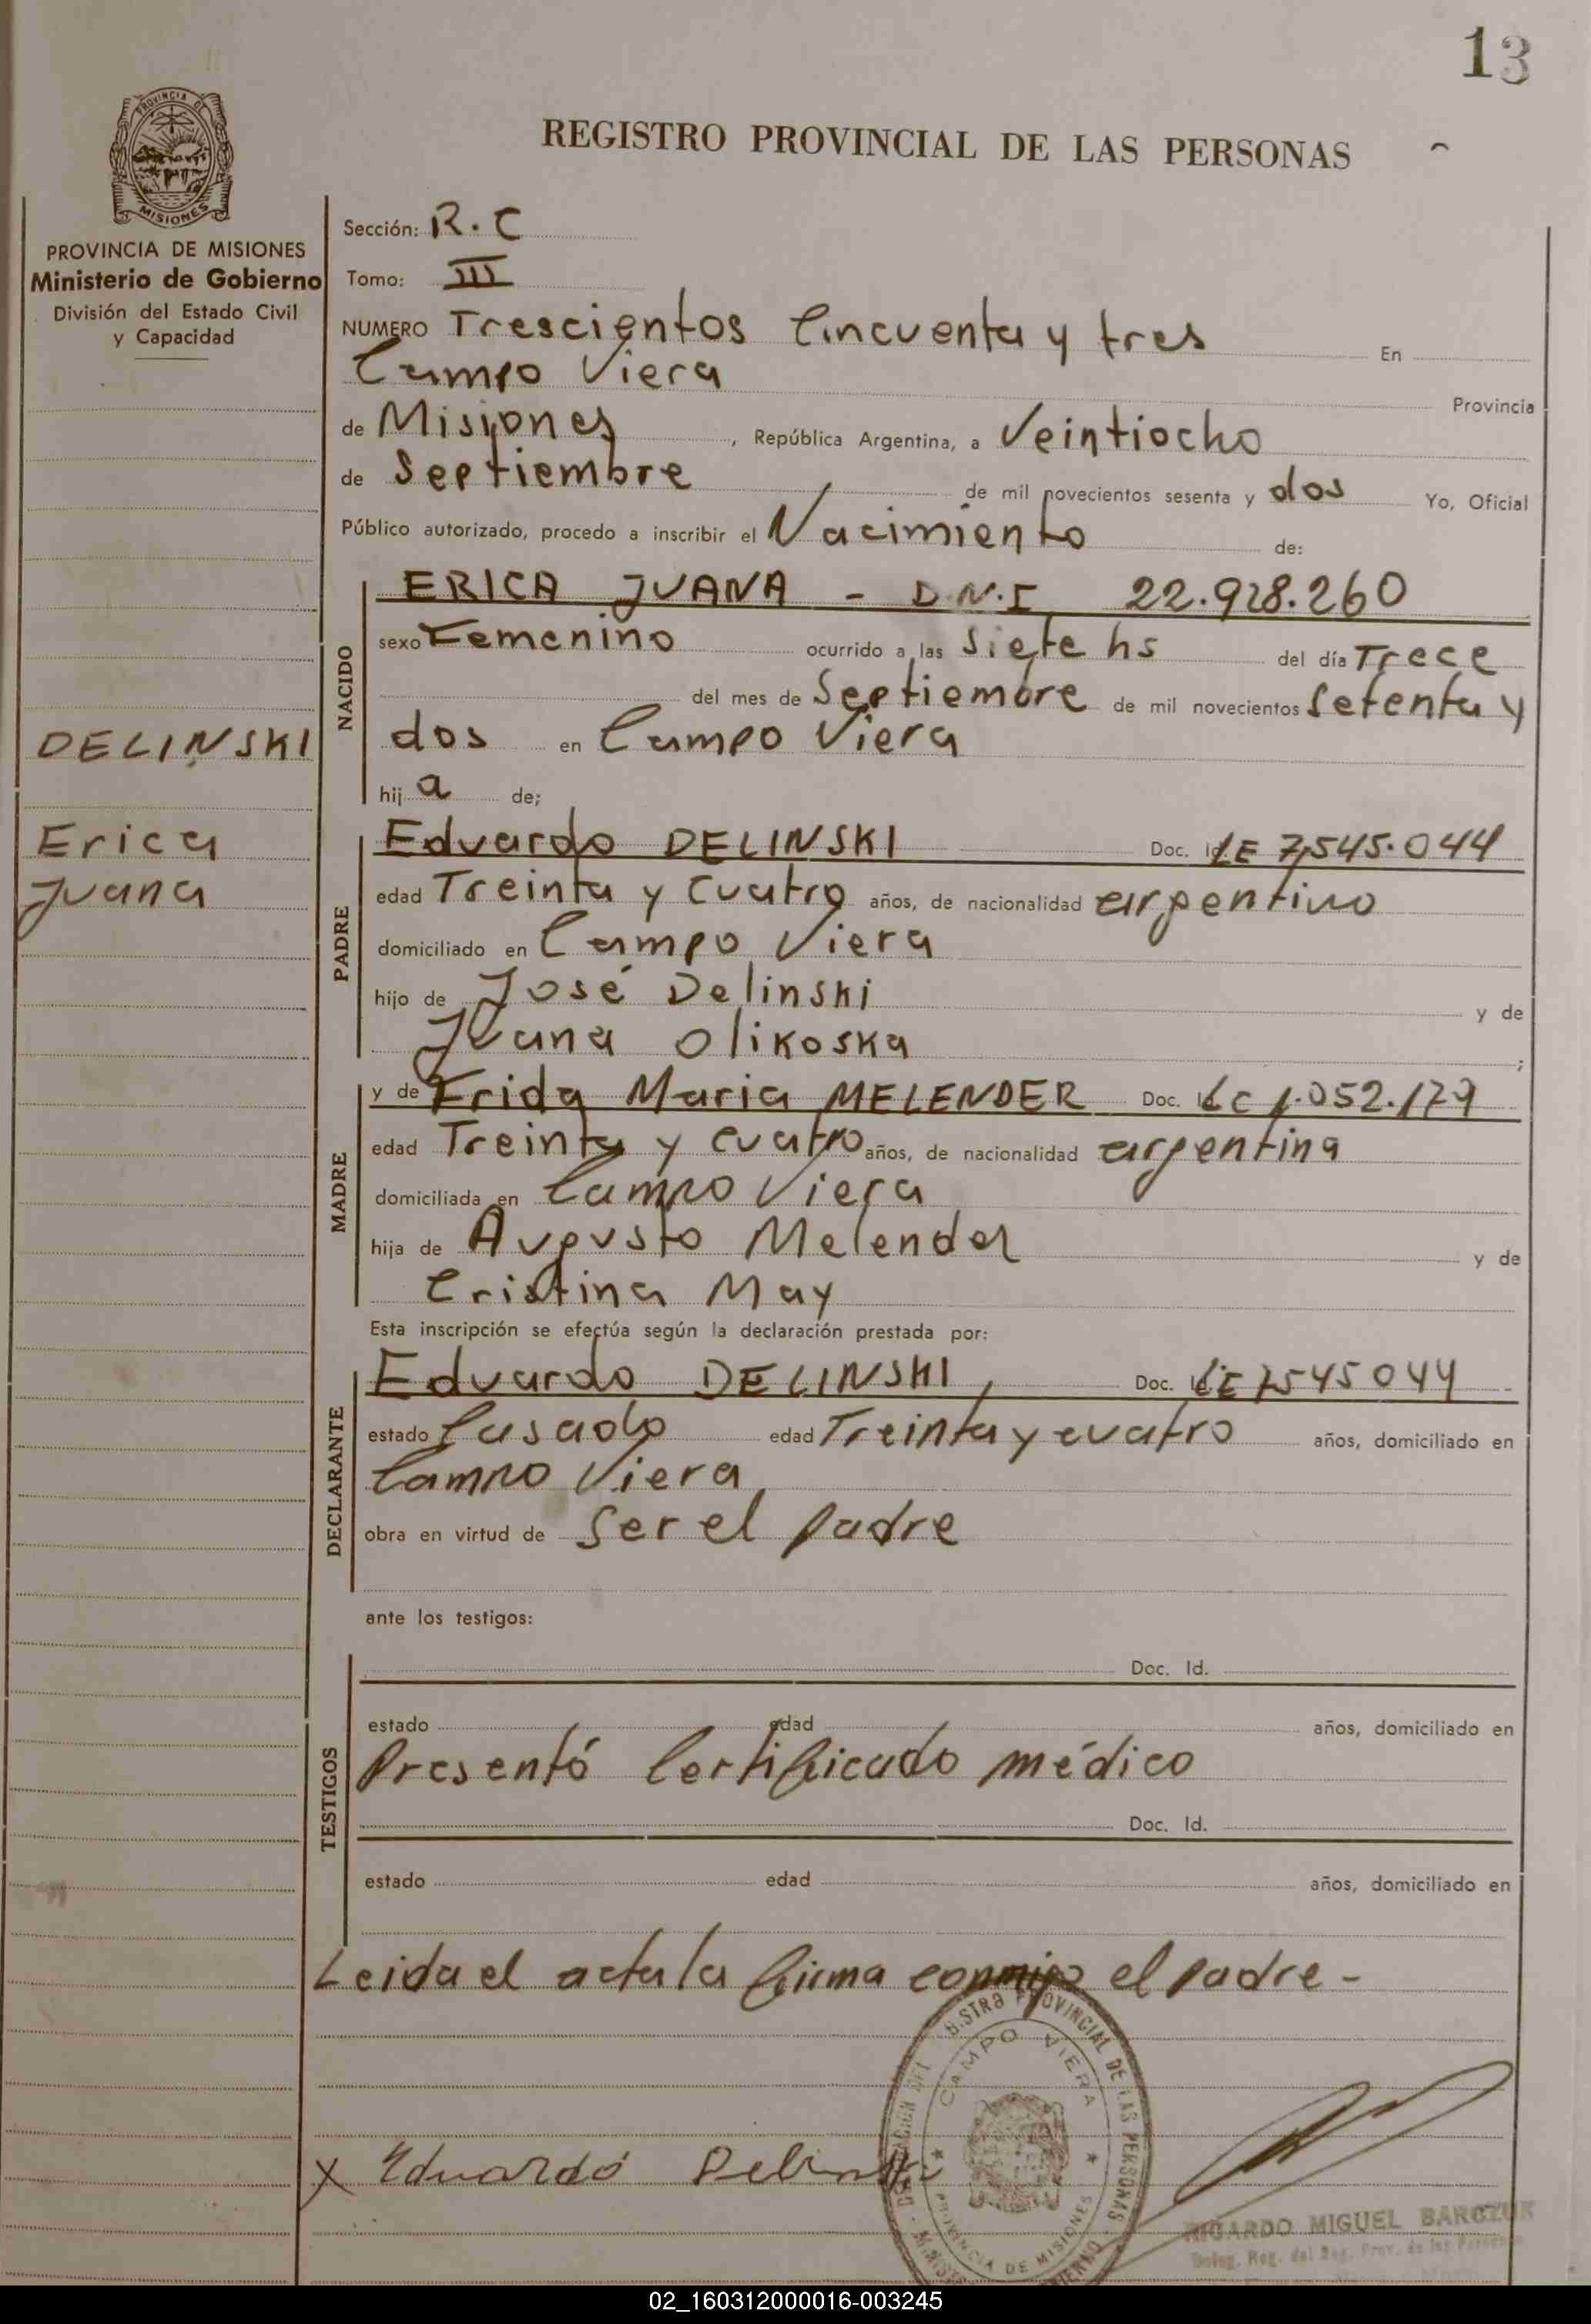 13
PROVINCIA DE
MISIONES
REGISTRO PROVINCIAL DE LAS PERSONAS
PROVINCIA DE MISIONES
Ministerio de Gobierno
División del Estado Civil
y Capacidad
Sección: R.C
Tomo: III
NUMERO Trescientos Cincuenta y tres En
Campo Viera Provincia
de Misiones, República Argentina, a Veintiocho
de Septiembre de mil novecientos sesenta y dos Yo, Oficial
Público autorizado, procedo a inscribir el Nacimiento de:
NACIDO
ERICA JUANA - D.N.I 22.928.260
sexo Femenino ocurrido a las Siete hs del día Trece
del mes de Septiembre de mil novecientos Setenta y
dos en Campo Viera
hij a de;
DELINSKI
Erica
Juana
PADRE
Eduardo DELINSKI Doc. LE 7,545.044
edad Treinta y Cuatro años, de nacionalidad argentino
domiciliado en Campo Viera
hijo de José Delinski y de
Juana Olikoska ;
MADRE
y de Frida Maria MELENDER Doc. LC 1.052.179
edad Treinta y cuatro años, de nacionalidad argentina
domiciliada en Campo Viera
hija de Augusto Melender y de
Cristina May
Esta inscripción se efectúa según la declaración prestada por:
DECLARANTE
Eduardo DELINSKI, Doc. LE 7545044
estado Casado edad Treinta y cuatro años, domiciliado en
Campo Viera
obra en virtud de Ser el padre
ante los testigos:
TESTIGOS
Doc. Id.
estado edad años, domiciliado en
Presentó Certificado médico
Doc. Id.
estado edad años, domiciliado en
Leida el acta la firma conmigo el padre -
REGISTRO PROVINCIAL DE LAS PERSONAS
CAMPO VIERA
PROVINCIA DE MISIONES
X Eduardo Delinski
RICARDO MIGUEL BARCZUK
Deleg. Reg. del Reg. Prov. de las Personas
02_160312000016-003245